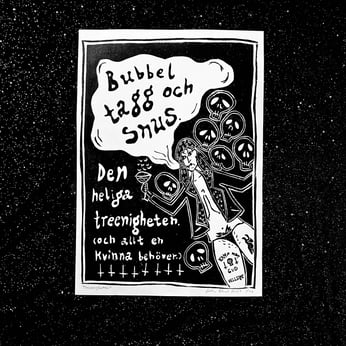 Bubbel
tagg och
snus.
Den
heliga
treenigheten.
(och allt en
kvinna behöver.)